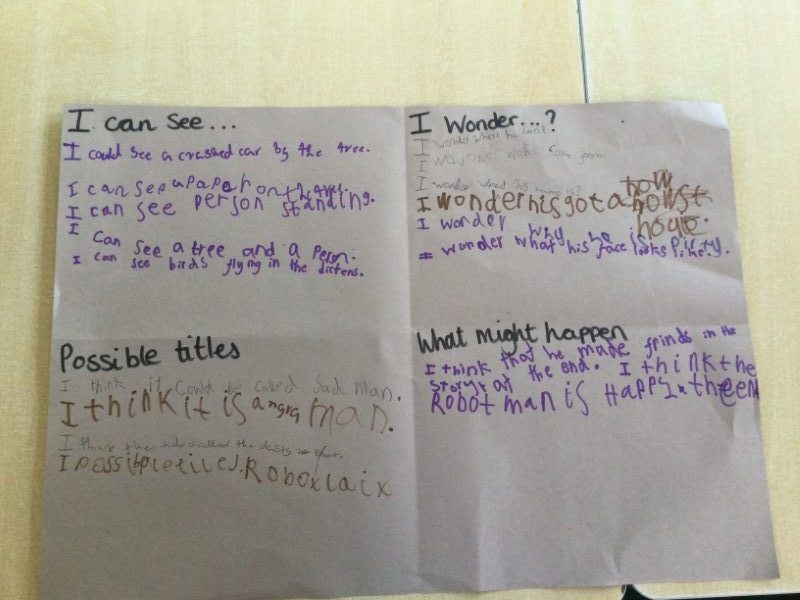 I can see...
I could see a crashed car by the tree.
I can see a papar on the tree.
I can see person standing.
I
Can see a tree and a person.
I can see birds flying in the distens.
I Wonder...?
I wonder where he lives?
I wonder
I wonder what his name is?
I wonder his got a how
howst
house.
I wonder why he is
I wonder what his face looks like?
Possible titles
I think it could be called Sad man.
I think it is angrg man.
I think the title is called the
I possible tilel. Roboxlaix
What might happen
I think that he made frinds in the
story at the end. I think the
Robot man is Happy in the en